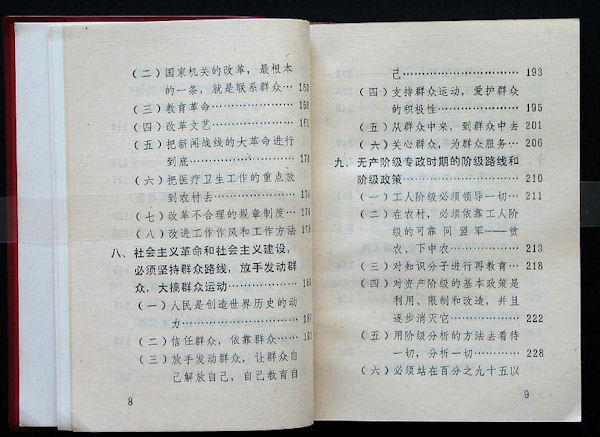 (二)国家机关的改革，最根本
的一条，就是联系群众…
(三)教育革命…
(四)改革文艺…
(五)把新闻战线的大革命进行
到底…
(六)把医疗卫生工作的重点放
到农村去…
(七)改革不合理的规章制度…
(八)改进工作作风和工作方法
八、社会主义革命和社会主义建设，
必须坚持群众路线，放手发动群
众，大搞群众运动…
(一)人民是创造世界历史的动
力…
(二)信任群众，依靠群众…
(三)放手发动群众，让群众自
己解放自己，自己教育自
8
己…193
(四)支持群众运动，爱护群众
的积极性…195
(五)从群众中来，到群众中去 201
(六)关心群众，为群众服务…206
九、无产阶级专政时期的阶级路线和
阶级政策…210
(一)工人阶级必须领导一切…211
(二)在农村，必须依靠工人阶
级的可靠同盟军——贫
农、下中农…213
(三)对知识分子进行再教育…218
(四)对资产阶级的基本政策是
利用、限制和改造，并且
逐步消灭它…222
(五)用阶级分析的方法去看待
一切，分析一切…228
(六)必须站在百分之九十五以
9